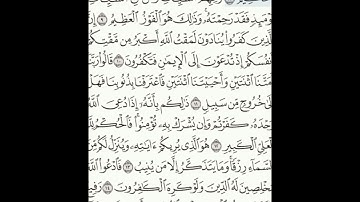 يَوْمَئِذٍ فَقَدْ رَحِمْتَهُۥ وَذَٰلِكَ هُوَ ٱلْفَوْزُ ٱلْعَظِيمُ ٩
ٱلَّذِينَ كَفَرُوا۟ يُنَادَوْنَ لَمَقْتُ ٱللَّهِ أَكْبَرُ مِن مَّقْتِكُمْ
أَنفُسَكُمْ إِذْ تُدْعَوْنَ إِلَى ٱلْإِيمَٰنِ فَتَكْفُرُونَ ١٠
أَمَتَّنَا ٱثْنَتَيْنِ وَأَحْيَيْتَنَا ٱثْنَتَيْنِ فَٱعْتَرَفْنَا بِذُنُوبِنَا فَهَلْ
إِلَىٰ خُرُوجٍ مِّن سَبِيلٍ ١١ ذَٰلِكُم بِأَنَّهُۥٓ إِذَا دُعِىَ ٱللَّهُ
وَحْدَهُۥ كَفَرْتُمْ وَإِن يُشْرَكْ بِهِۦ تُؤْمِنُوا۟ فَٱلْحُكْمُ لِلَّهِ
ٱلْعَلِىِّ ٱلْكَبِيرِ ١٢ هُوَ ٱلَّذِى يُرِيكُمْ ءَايَٰتِهِۦ وَيُنَزِّلُ لَكُم
ٱلسَّمَآءِ رِزْقًا وَمَا يَتَذَكَّرُ إِلَّا مَن يُنِيبُ ١٣ فَٱدْعُوا۟ ٱللَّهَ
مُخْلِصِينَ لَهُ ٱلدِّينَ وَلَوْ كَرِهَ ٱلْكَٰفِرُونَ ١٤